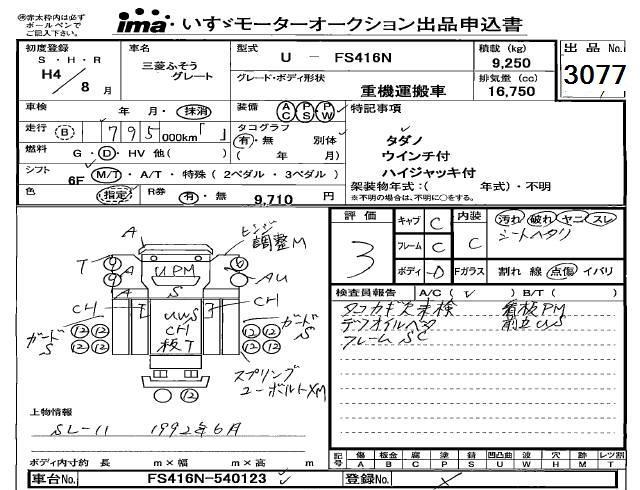 ㊟赤太枠内は必ず
ボールペンで
ご記入下さい。
ima・いすゞモーターオークション出品申込書
初度登録
S・H・R
H4
8月
車名
三菱ふそう
グレート
型式
U － FS416N
グレード・ボディ形状
重機運搬車
積載 (kg)
9,250
排気量 (cc)
16,750
出品 No.
3077
車検 年 月・抹消
装備 AC PS PW
特記事項
走行 (B) 795000km「 」
タコグラフ
有・無 別体
( 年 月)
タダノ
ウインチ付
ハイジャッキ付
燃料 G・D・HV 他( )
シフト 6F M/T・A/T・特殊(2ペダル・3ペダル)
架装物年式：( 年式)・不明
※不明の場合は、不明に○をする。
色 指定 R券 有・無 9,710 円
評価
3
キャブ C
フレーム C
ボディ D
内装
C
Fガラス
汚れ 破れ ヤニ スレ
シートヘタリ
割れ 線 点傷 イバリ
検査員報告 A/C( レ ) B/T( )
タコカギ欠未検 看板PM
デフオイルヘタ 前立US
フレームSC
A
ヒンジ
調整M
T
A
UPM
A
S
AU
CH
UWS
CH
板T
CH
ガード
S
ガード
S
⑫⑫ ⑫⑫
⑫⑫ ⑫⑫
スプリング
ユーボルトXM
上物情報
SL-11 1992年6月
ボディ内寸約 長 m×幅 m×高 m
記号 傷 板金 腐 塗 錆 凹凸曲 波 穴 跡 レツ割
A B C P S U W H M T
車台No. FS416N-540123 登録No.